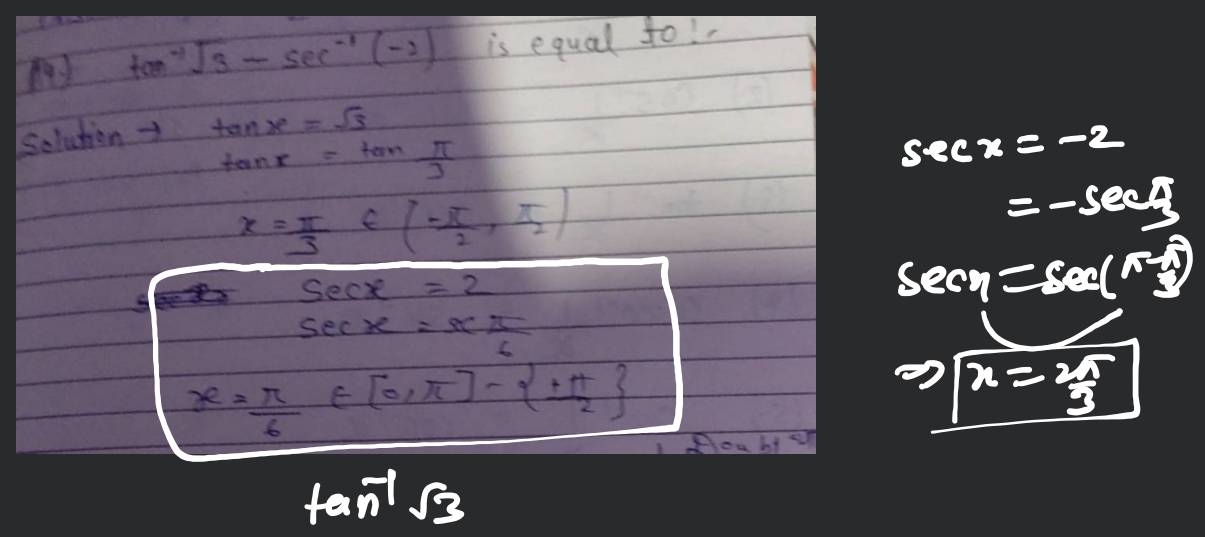 14.) tan⁻¹√3 - sec⁻¹(-2) is equal to :-
Solution → tanx = √3
tanx = tan π/3
x = π/3 ∈ (-π/2, π/2)
secx = 2
secx = sec π/6
x = π/6 ∈ [0, π] - {+π/2}
tan⁻¹ √3
secx = -2
= -sec π/3
secx = sec(π - π/3)
⇒ x = 2π/3